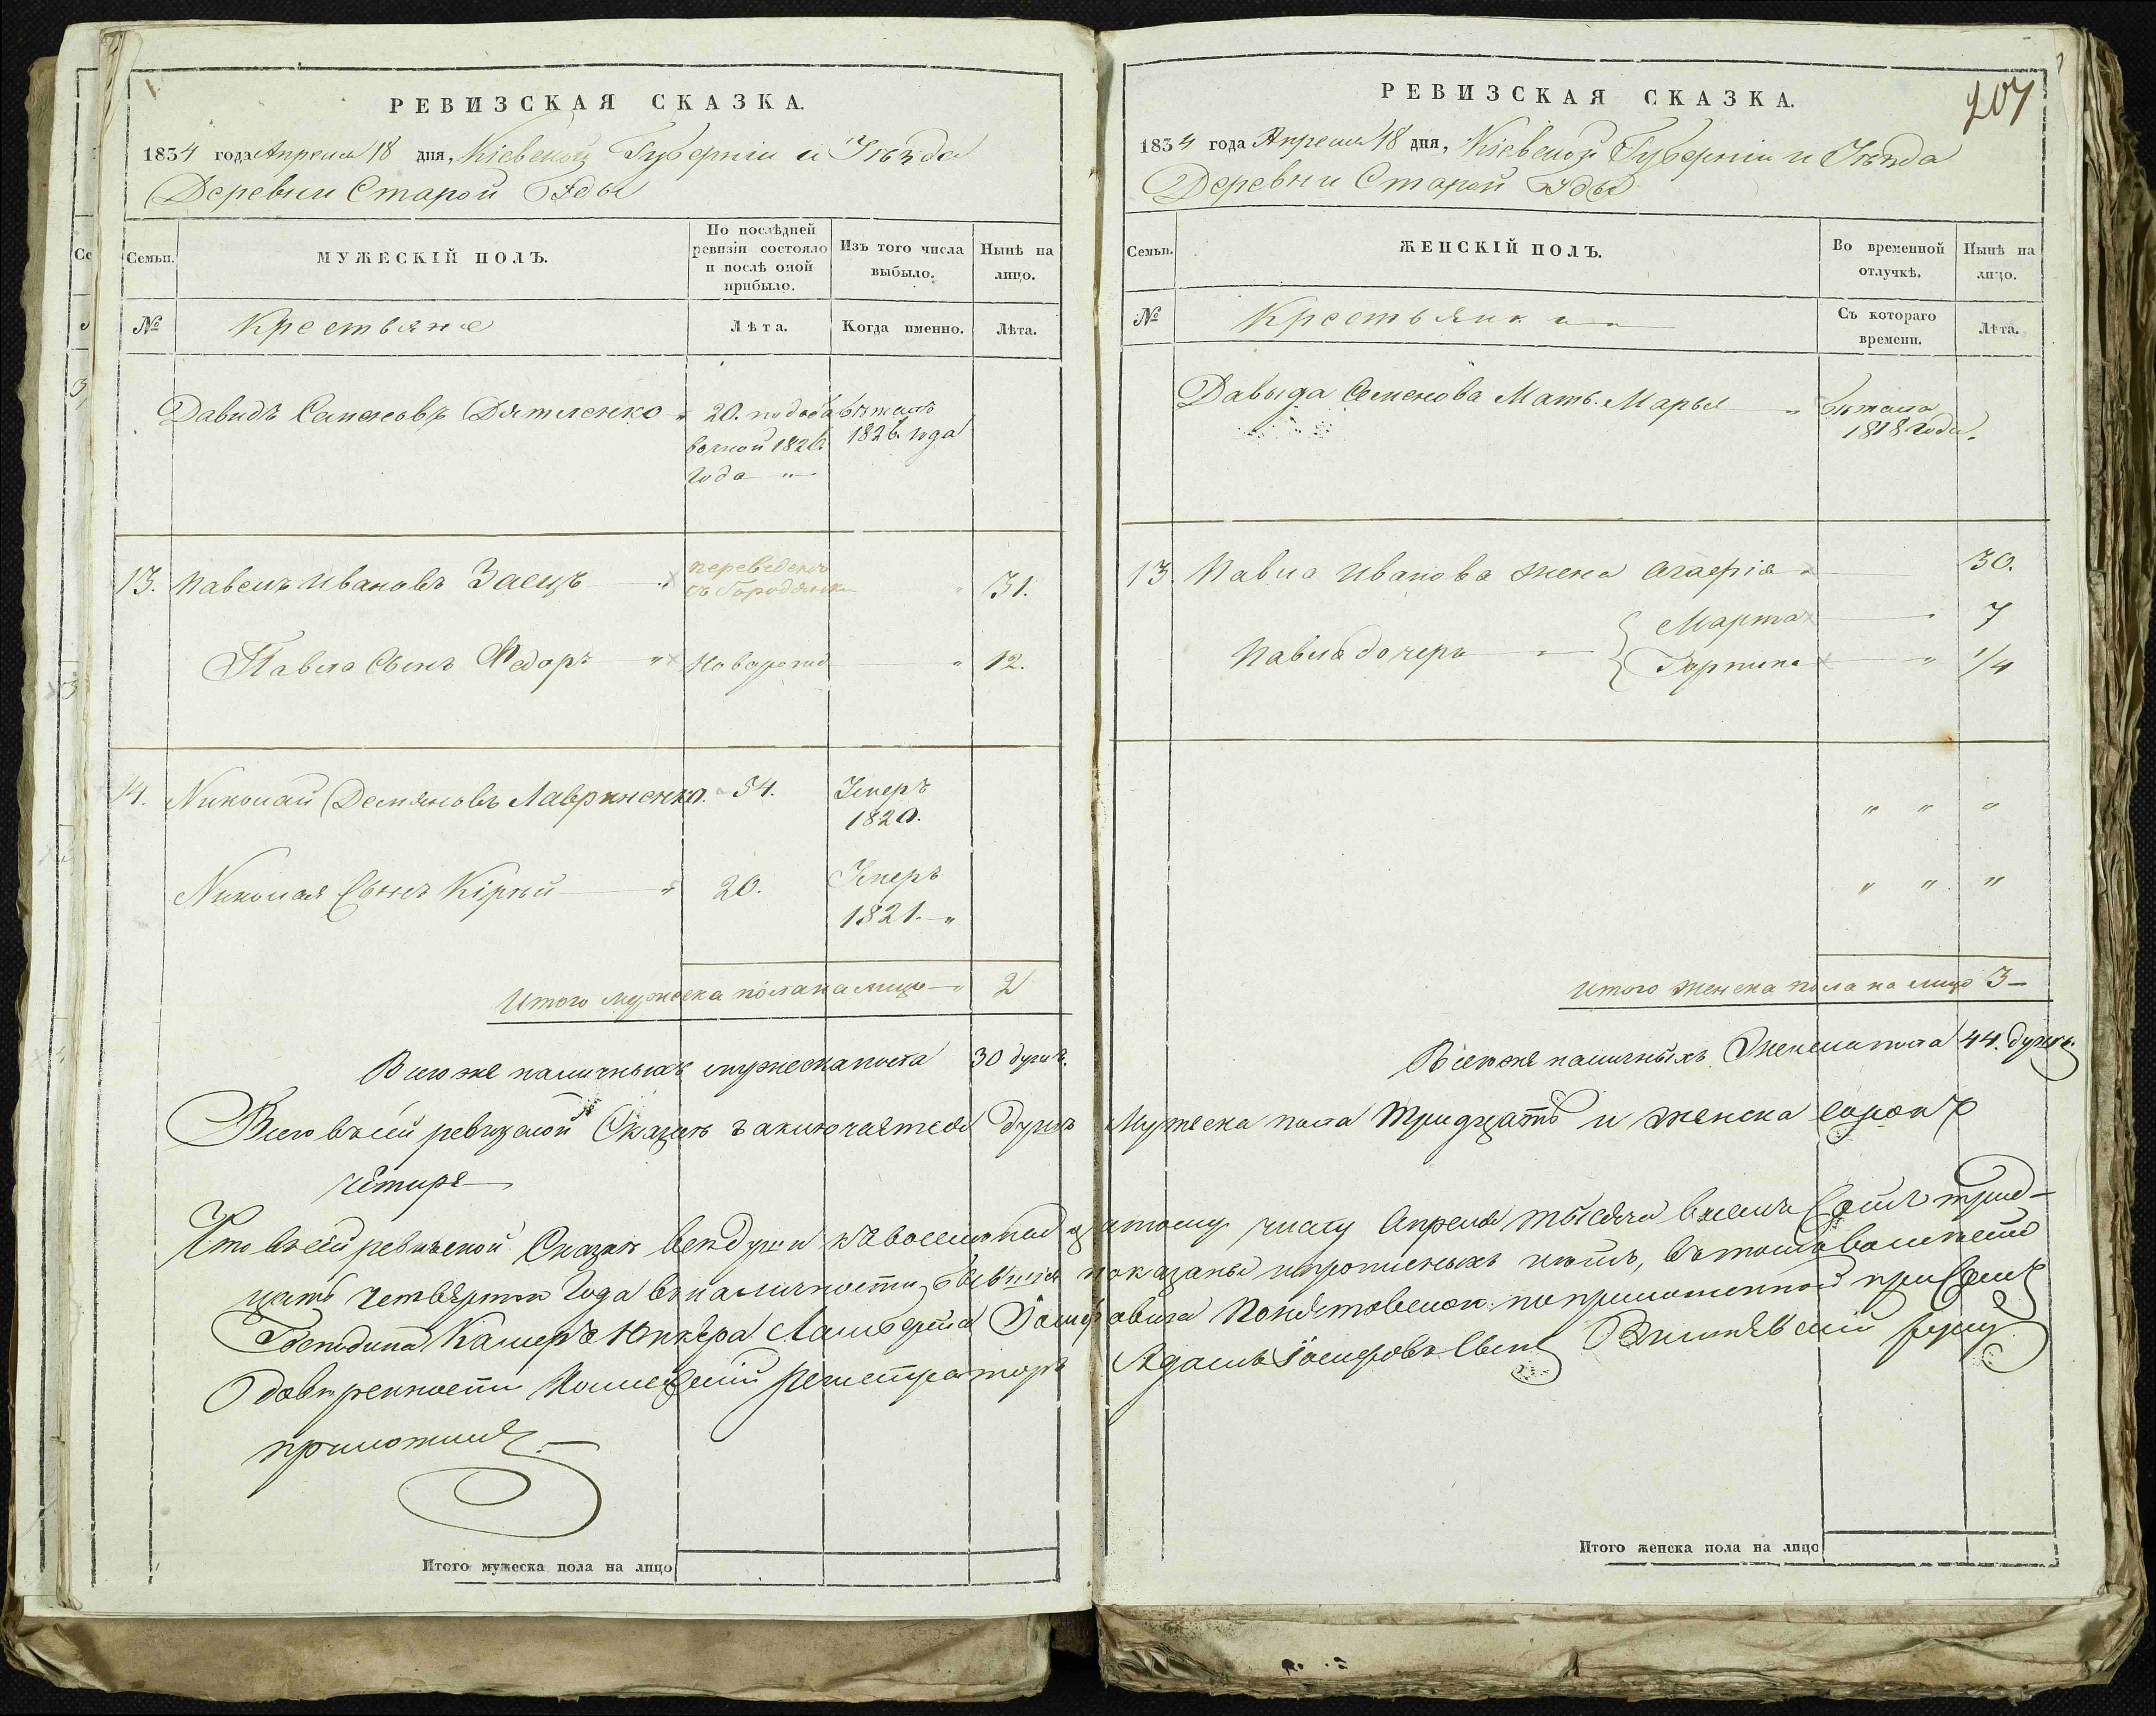 РЕВИЗСКАЯ СКАЗКА.
1834 года Апреля 18 дня, Кіевской Губерніи и Уѣзда
Деревни Старой Буды
Семьи.
МУЖЕСКІЙ ПОЛЪ.
По послѣдней ревизіи состояло и послѣ оной прибыло.
Изъ того числа выбыло.
Нынѣ на лицо.
№
Крестьяне
Лѣта.
Когда именно.
Лѣта.
Давидъ Семеновъ Дятленко 20. по доба бѣжалъ
вочной 1826. 1826. года
года
13. Павелъ Ивановъ Заецъ переведенъ 31.
съ Городянки
Павла Сынъ Федоръ Новорожд 12.
14. Николай Демяновъ Лавриненко. 54. Умеръ
1820.
Николая Сынъ Кірѣй 20. Умеръ
1821.
Итого мужеска пола на лицо 2
Всего же наличныхъ мужеска пола 30 душъ.
РЕВИЗСКАЯ СКАЗКА.
207
1834 года Апреля 18 дня, Кіевской Губерніи и Уѣзда
Деревни Старой Буды
Семьи.
ЖЕНСКІЙ ПОЛЪ.
Во временной отлучкѣ.
Нынѣ на лицо.
№
Крестьянки
Съ котораго времени.
Лѣта.
Давыда Семенова Мать Марья бѣжала
1818 года.
13. Павла Иванова жена Агафія 30.
Марта 7
Павла дочери
Горпина 1/4
Итого женска пола на лицо 3
Всего же наличныхъ Женска пола 44. душъ.
Всего въ сей ревизской Сказкѣ заключается Душъ Мужеска пола тридцать и женска сорокъ
четыре
Что въ сей ревизской Сказкѣ всѣ души къ восемнадцатому числу Апреля тысяча восемъ Сотъ трид-
цать четвертого Года въ наличности бывшія показаны и прописныхъ нѣтъ, въ томъ
Господина Камеръ Юнкера Іосифовича Понятовского по приложенной при семъ
Довѣренности Колежскій Регистраторъ Адамъ Іосифовъ Сынъ руку
приложилъ.
Итого мужеска пола на лицо
Итого женска пола на лицо